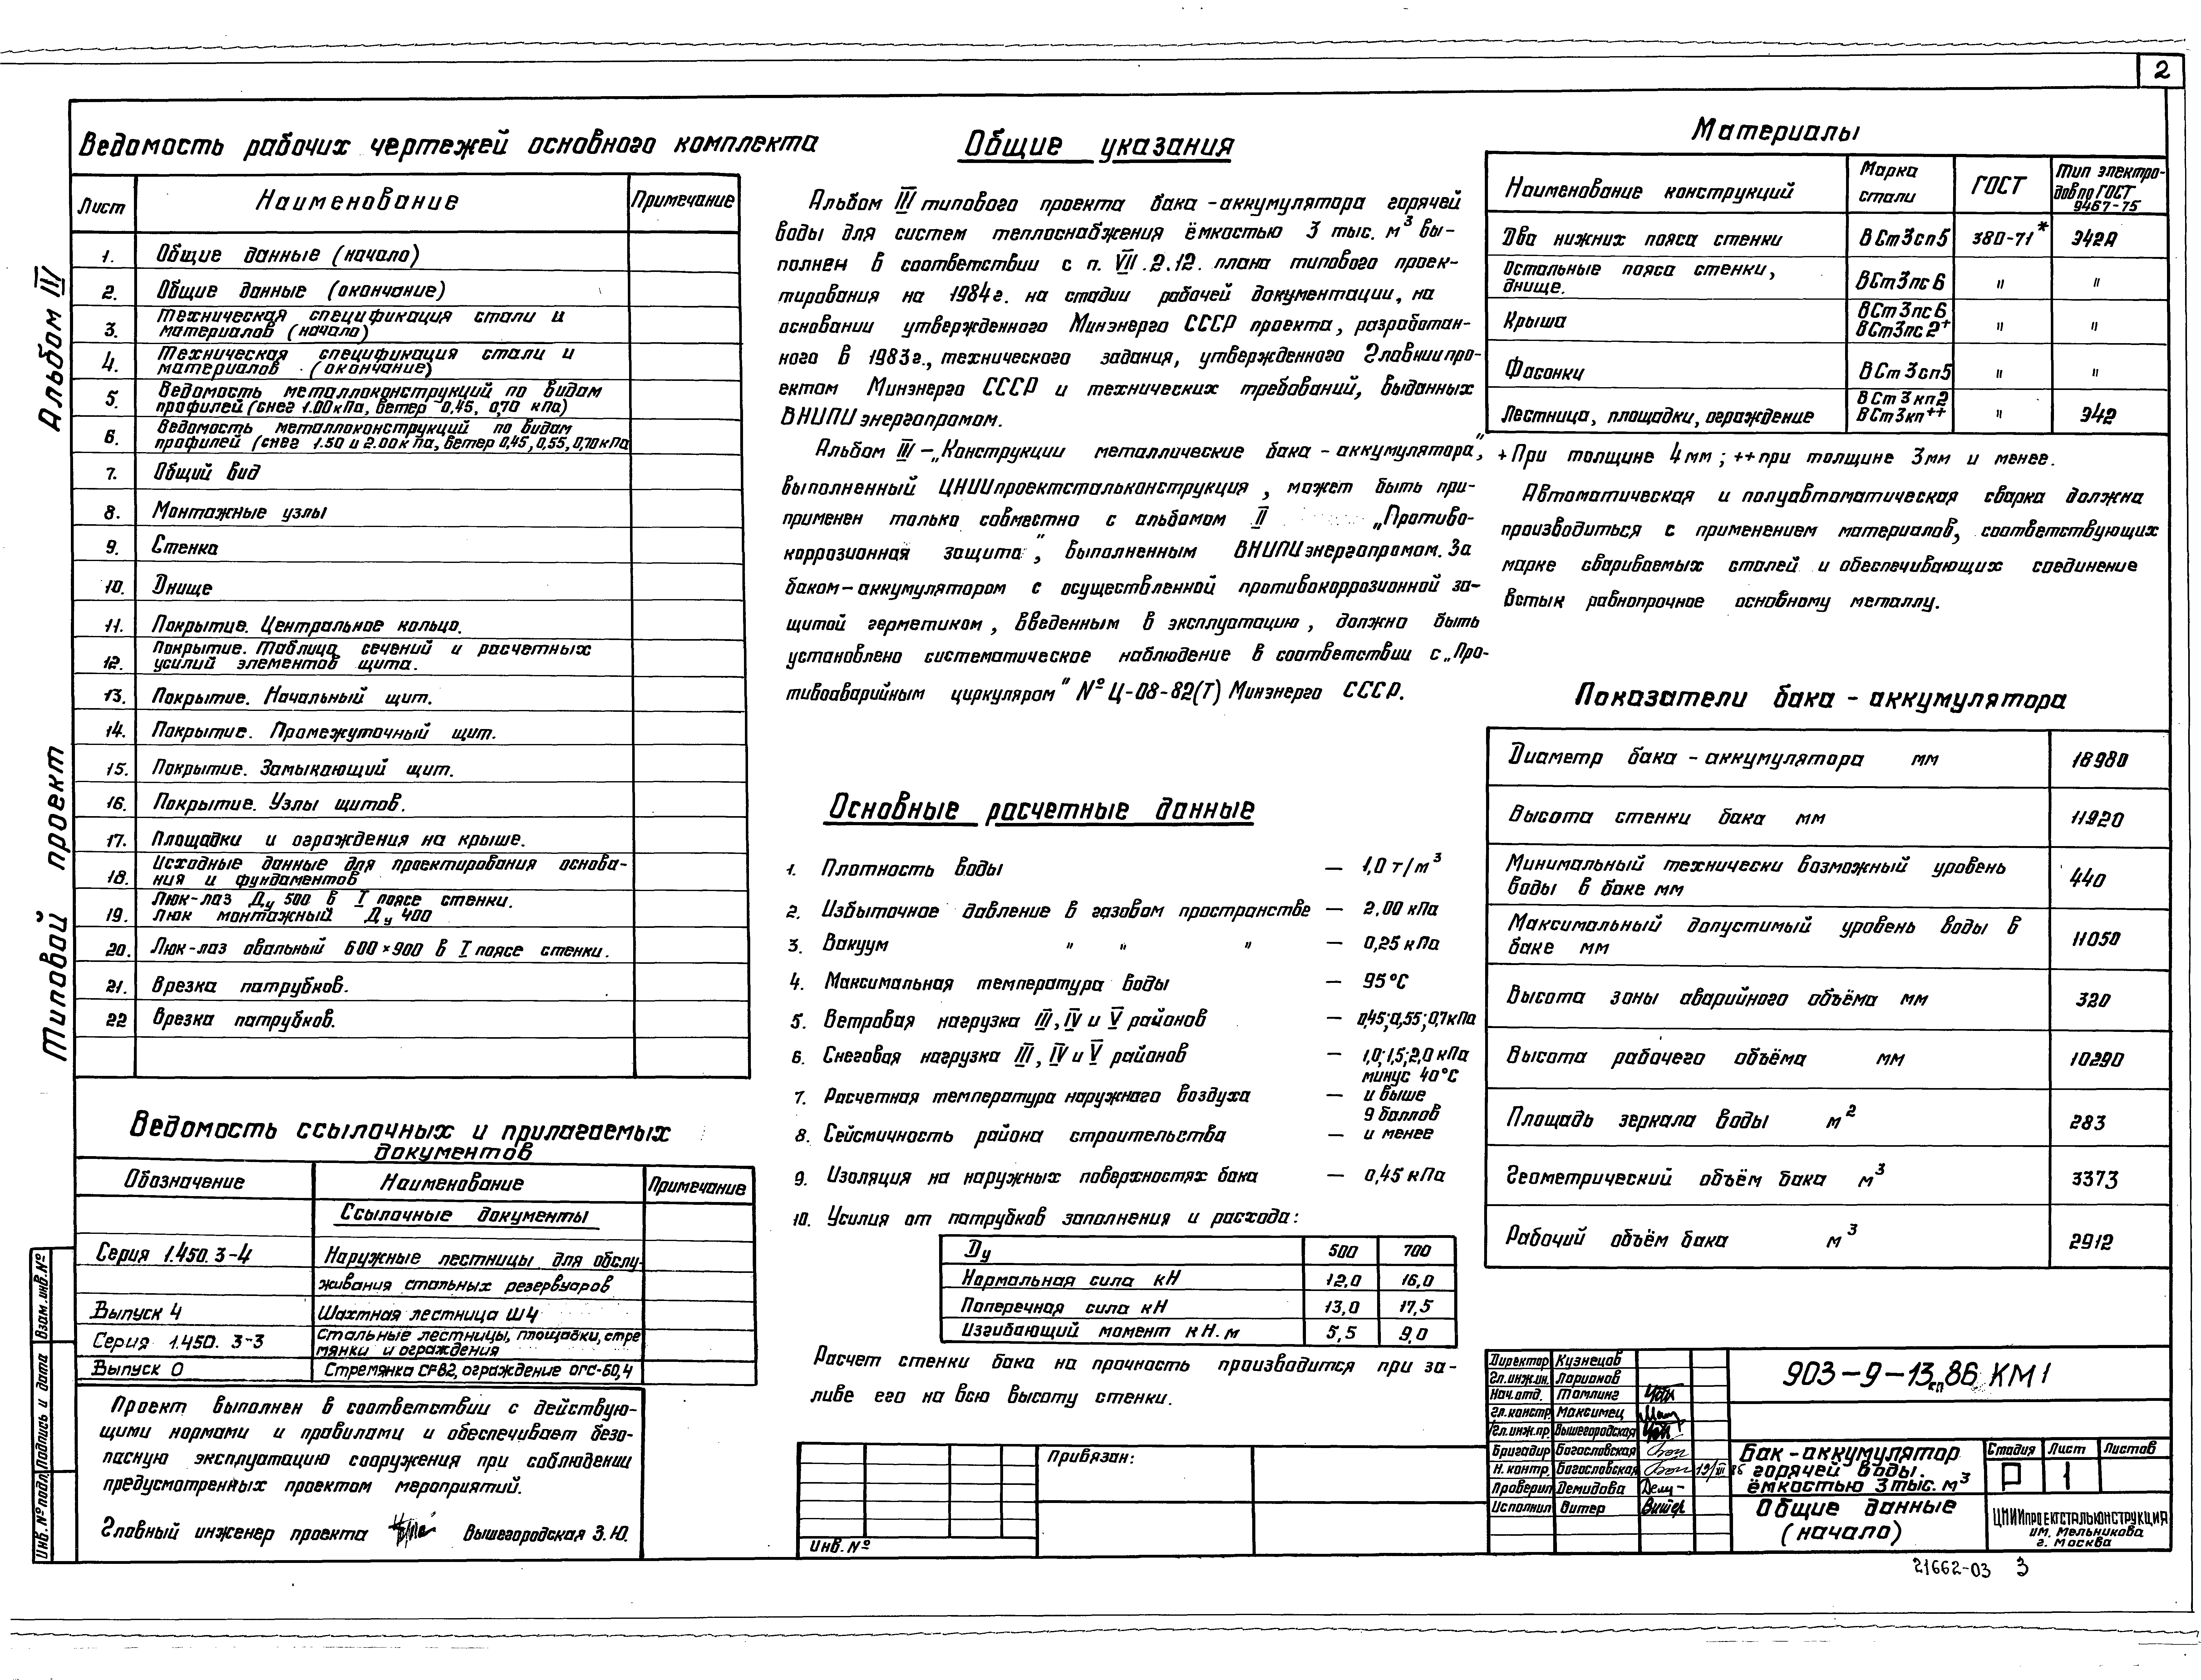 2
Альбом IV
Типовой проект
Ведомость рабочих чертежей основного комплекта
Лист Наименование Примечание
1. Общие данные (начало)
2. Общие данные (окончание)
3. Техническая спецификация стали и
материалов (начало)
4. Техническая спецификация стали и
материалов (окончание)
5. Ведомость металлоконструкций по видам
профилей (снег 1.00 кПа, ветер 0,45, 0,70 кПа)
6. Ведомость металлоконструкций по видам
профилей (снег 1.50 и 2.00 кПа, ветер 0,45, 0,55, 0,70 кПа
7. Общий вид
8. Монтажные узлы
9. Стенка
10. Днище
11. Покрытие. Центральное кольцо.
12. Покрытие. Таблица сечений и расчетных
усилий элементов щита.
13. Покрытие. Начальный щит.
14. Покрытие. Промежуточный щит.
15. Покрытие. Замыкающий щит.
16. Покрытие. Узлы щитов.
17. Площадки и ограждения на крыше.
18. Исходные данные для проектирования основа-
ния и фундаментов
19. Люк-лаз Ду 500 в I поясе стенки.
люк монтажный Ду 400
20. Люк-лаз овальный 600×900 в I поясе стенки.
21. Врезка патрубков.
22 Врезка патрубков.
Ведомость ссылочных и прилагаемых
документов
Обозначение Наименование Примечание
Ссылочные документы
Серия 1.450.3-4 Наружные лестницы для обслу-
живания стальных резервуаров
Выпуск 4 Шахтная лестница Ш4
Серия 1.450. 3-3 Стальные лестницы, площадки, стре
мянки и ограждения
Выпуск 0 Стремянка СГ82, ограждение ОГС-60,4
Проект выполнен в соответствии с действую-
щими нормами и правилами и обеспечивает безо-
пасную эксплуатацию сооружения при соблюдении
предусмотренных проектом мероприятий.
Главный инженер проекта Вышегородская З.Ю.
Инв.№ подл. Подпись и дата Взам.инв.№
Общие указания
Альбом III типового проекта бака-аккумулятора горячей
воды для систем теплоснабжения ёмкостью 3 тыс. м3 вы-
полнен в соответствии с п. VII.2.12. плана типового проек-
тирования на 1984г. на стадии рабочей документации, на
основании утвержденного Минэнерго СССР проекта, разработан-
ного в 1983г., технического задания, утвержденного Главниипро-
ектом Минэнерго СССР и технических требований, выданных
ВНИПИэнергопромом.
Альбом III –„Конструкции металлические бака-аккумулятора",
выполненный ЦНИИпроектстальконструкция, может быть при-
применен только совместно с альбомом II „Противо-
коррозионная защита", выполненным ВНИПИэнергопромом. За
баком-аккумулятором с осуществленной противокоррозионной за-
щитой герметиком, введенным в эксплуатацию, должно быть
установлено систематическое наблюдение в соответствии с „Про-
тивоаварийным циркуляром" № Ц-08-82(Т) Минэнерго СССР.
Основные расчетные данные
1. Плотность воды — 1,0 т/м3
2. Избыточное давление в газовом пространстве — 2,00 кПа
3. Вакуум " " " — 0,25 кПа
4. Максимальная температура воды — 95°С
5. Ветровая нагрузка III, IV и V районов — 0,45; 0,55; 0,7 кПа
6. Снеговая нагрузка III, IV и V районов — 1,0; 1,5; 2,0 кПа
минус 40°С
7. Расчетная температура наружнаго воздуха — и выше
9 баллов
8. Сейсмичность района строительства — и менее
9. Изоляция на наружных поверхностях бака — 0,45 кПа
10. Усилия от патрубков заполнения и расхода:
Ду 500 700
Нормальная сила кН 12,0 16,0
Поперечная сила кН 13,0 17,5
Изгибающий момент кН.м 5,5 9,0
Расчет стенки бака на прочность производится при за-
ливе его на всю высоту стенки.
Привязан:
Инв. №
Материалы
Наименование конструкций Марка стали ГОСТ Тип электро-
дов по ГОСТ
9467-75
Два нижних пояса стенки ВСт3сп5 380-71* Э42А
Остальные пояса стенки,
днище. ВСт3пс6 " "
Крыша ВСт3пс6
ВСт3пс2+ " "
Фасонки ВСт3сп5 " "
Лестница, площадки, ограждение ВСт3кп2
ВСт3кп++ " Э42
+При толщине 4мм; ++при толщине 3мм и менее.
Автоматическая и полуавтоматическая сварка должна
производиться с применением материалов, соответствующих
марке свариваемых сталей и обеспечивающих соединение
встык равнопрочное основному металлу.
Показатели бака-аккумулятора
Диаметр бака-аккумулятора мм 18980
Высота стенки бака мм 11920
Минимальный технически возможный уровень
воды в баке мм 440
Максимальный допустимый уровень воды в
баке мм 11050
Высота зоны аварийного объёма мм 320
Высота рабочего объёма мм 10290
Площадь зеркала воды м2 283
Геометрический объём бака м3 3373
Рабочий объём бака м3 2912
Директор Кузнецов
Гл.инж.ин. Ларионов
Нач.отд. Томлинг
Гл.констр. Максимец
Гл.инж.пр. Вышегородская
Бригадир Богословская
Н.контр. Богословская 19/XII 86
Проверил Демидова
Исполнил Витер
903-9-13сп86 КМ1
Бак-аккумулятор
горячей воды.
ёмкостью 3 тыс. м3
Стадия Лист Листов
Р 1
Общие данные
(начало)
ЦНИИПРОЕКТСТАЛЬКОНСТРУКЦИЯ
им. Мельникова
г. Москва
21662-03 3